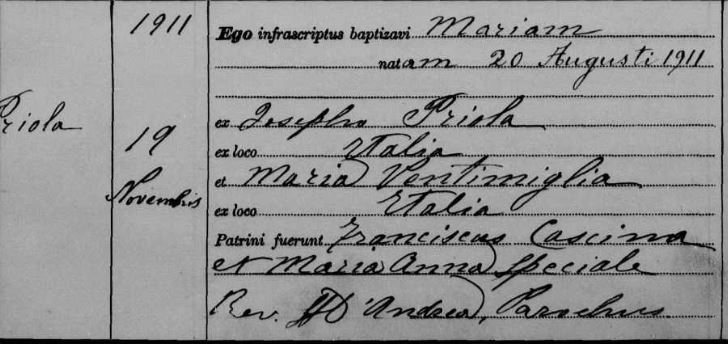 1911
Ego infrascriptus baptizavi Mariam
natam 20 Augusti 1911
Priola
19
Novembris
ex Josepho Priola
ex loco Italia
et Maria Ventimiglia
ex loco Italia
Patrini fuerunt Franciscus Cascina
et Maria Anna Speciale
Rev. D'Andrea, Parochus